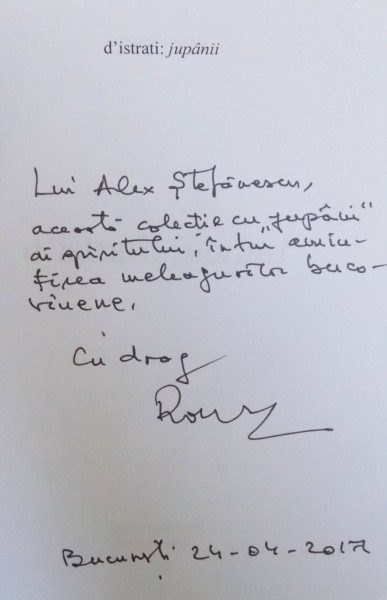 d’istrati: jupânii
Lui Alex Ștefănescu,
această colecție cu „jupâni”
ai spiritului, întru amin-
tirea meleagurilor buco-
vinene,
Cu drag
București 24-04-2017